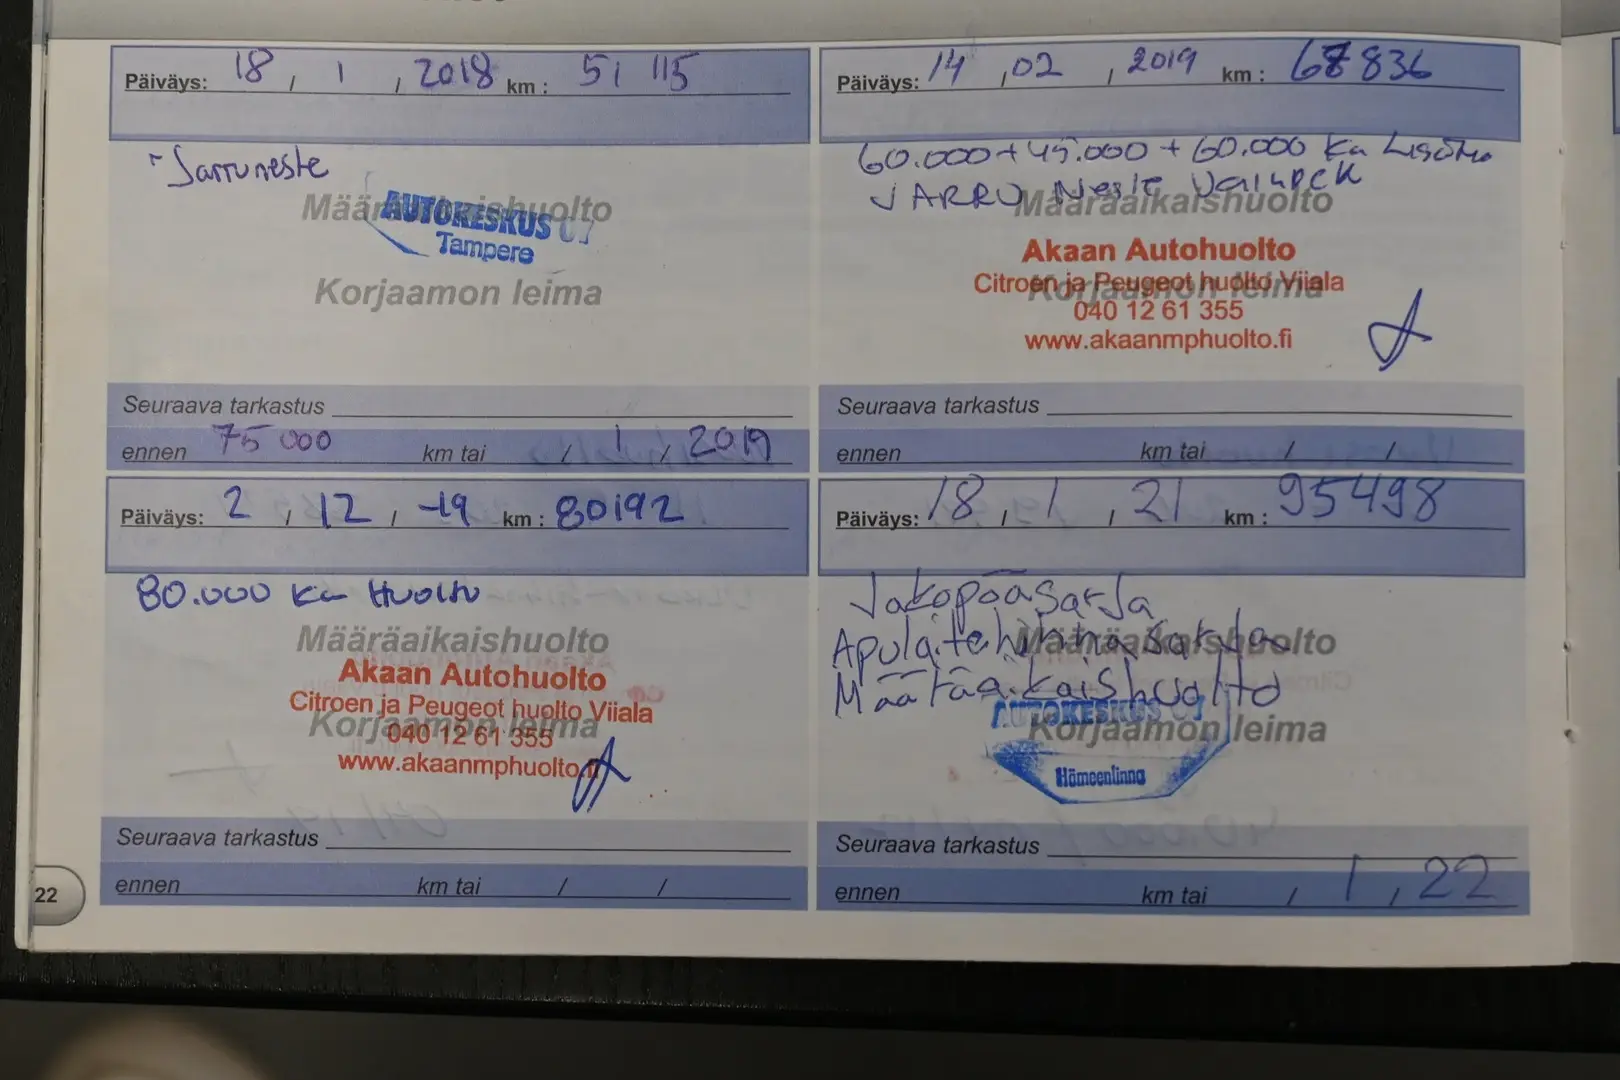 Päiväys: 18 / 1 / 2018 km : 51 115
- Jarruneste
Määräaikaishuolto
AUTOKESKUS OY
Tampere
Korjaamon leima
Seuraava tarkastus
ennen 75 000 km tai / 1 / 2019
Päiväys: 14 / 02 / 2019 km : 68836
60.000+45.000+60.000 km Lisätyö
JARRU Neste
Määräaikaishuolto
Akaan Autohuolto
Citroen ja Peugeot huolto Viiala
Korjaamon leima
040 12 61 355
www.akaanmphuolto.fi
Seuraava tarkastus
ennen km tai / /
Päiväys: 2 / 12 / -19 km : 80192
80.000 km Huolto
Määräaikaishuolto
Akaan Autohuolto
Citroen ja Peugeot huolto Viiala
Korjaamon leima
040 12 61 355
www.akaanmphuolto.fi
Seuraava tarkastus
ennen km tai / /
Päiväys: 18 / 1 / 21 km : 95498
Jakopääsarja
Apulaitehihnasarja
Määräaikaishuolto
Määräaikaishuolto
AUTOKESKUS OY
Korjaamon leima
Hämeenlinna
Seuraava tarkastus
ennen km tai / 1 / 22
22